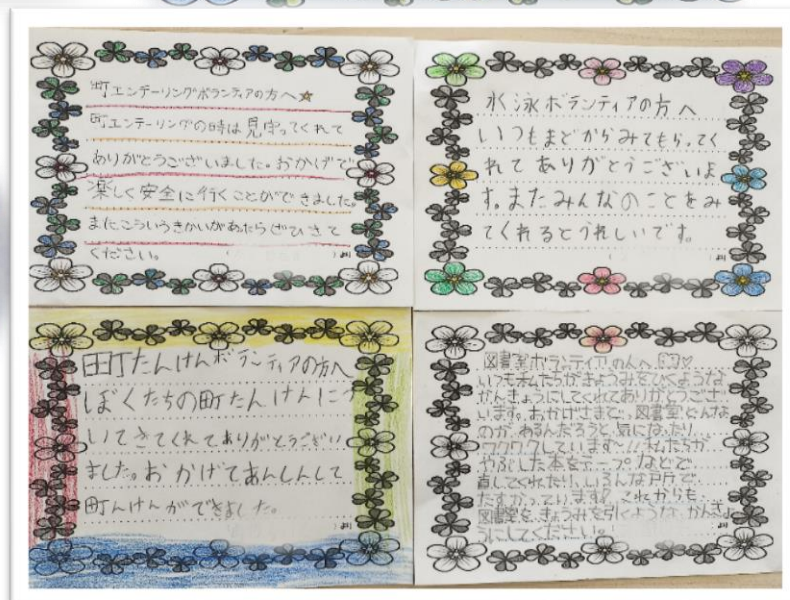 町エンテーリングボランティアの方へ☆
町エンテーリングの時は見守ってくれて
ありがとうございました。おかげで
楽しく安全に行くことができました。
またこういうきかいがあたらぜひきて
ください。
より
水泳ボランティアの方へ
いつもまどからみてもらってく
れてありがとうございま
す。またみんなのことをみ
てくれるとうれしいです。
より
町たんけんボランティアの方へ
ぼくたちの町たんけんにつ
いてきてくれてありがとうござい
ました。おかげであんしんして
町んけんができました。
より
図書室ボランティアの人へ
いつも私たちがきょうみをひくような
かんきょうにしてくれてありがとうござ
います。おかげさまで、図書室どんな
のが、あるんだろうと、気になったり、
ワクワクしています!!私たちが
やぶした本をテープなどで
直してくれたり、いろんな所で
たすかっています! これからも
図書室を、きょうみを引くような、かんきょ
うにしてください。!
より